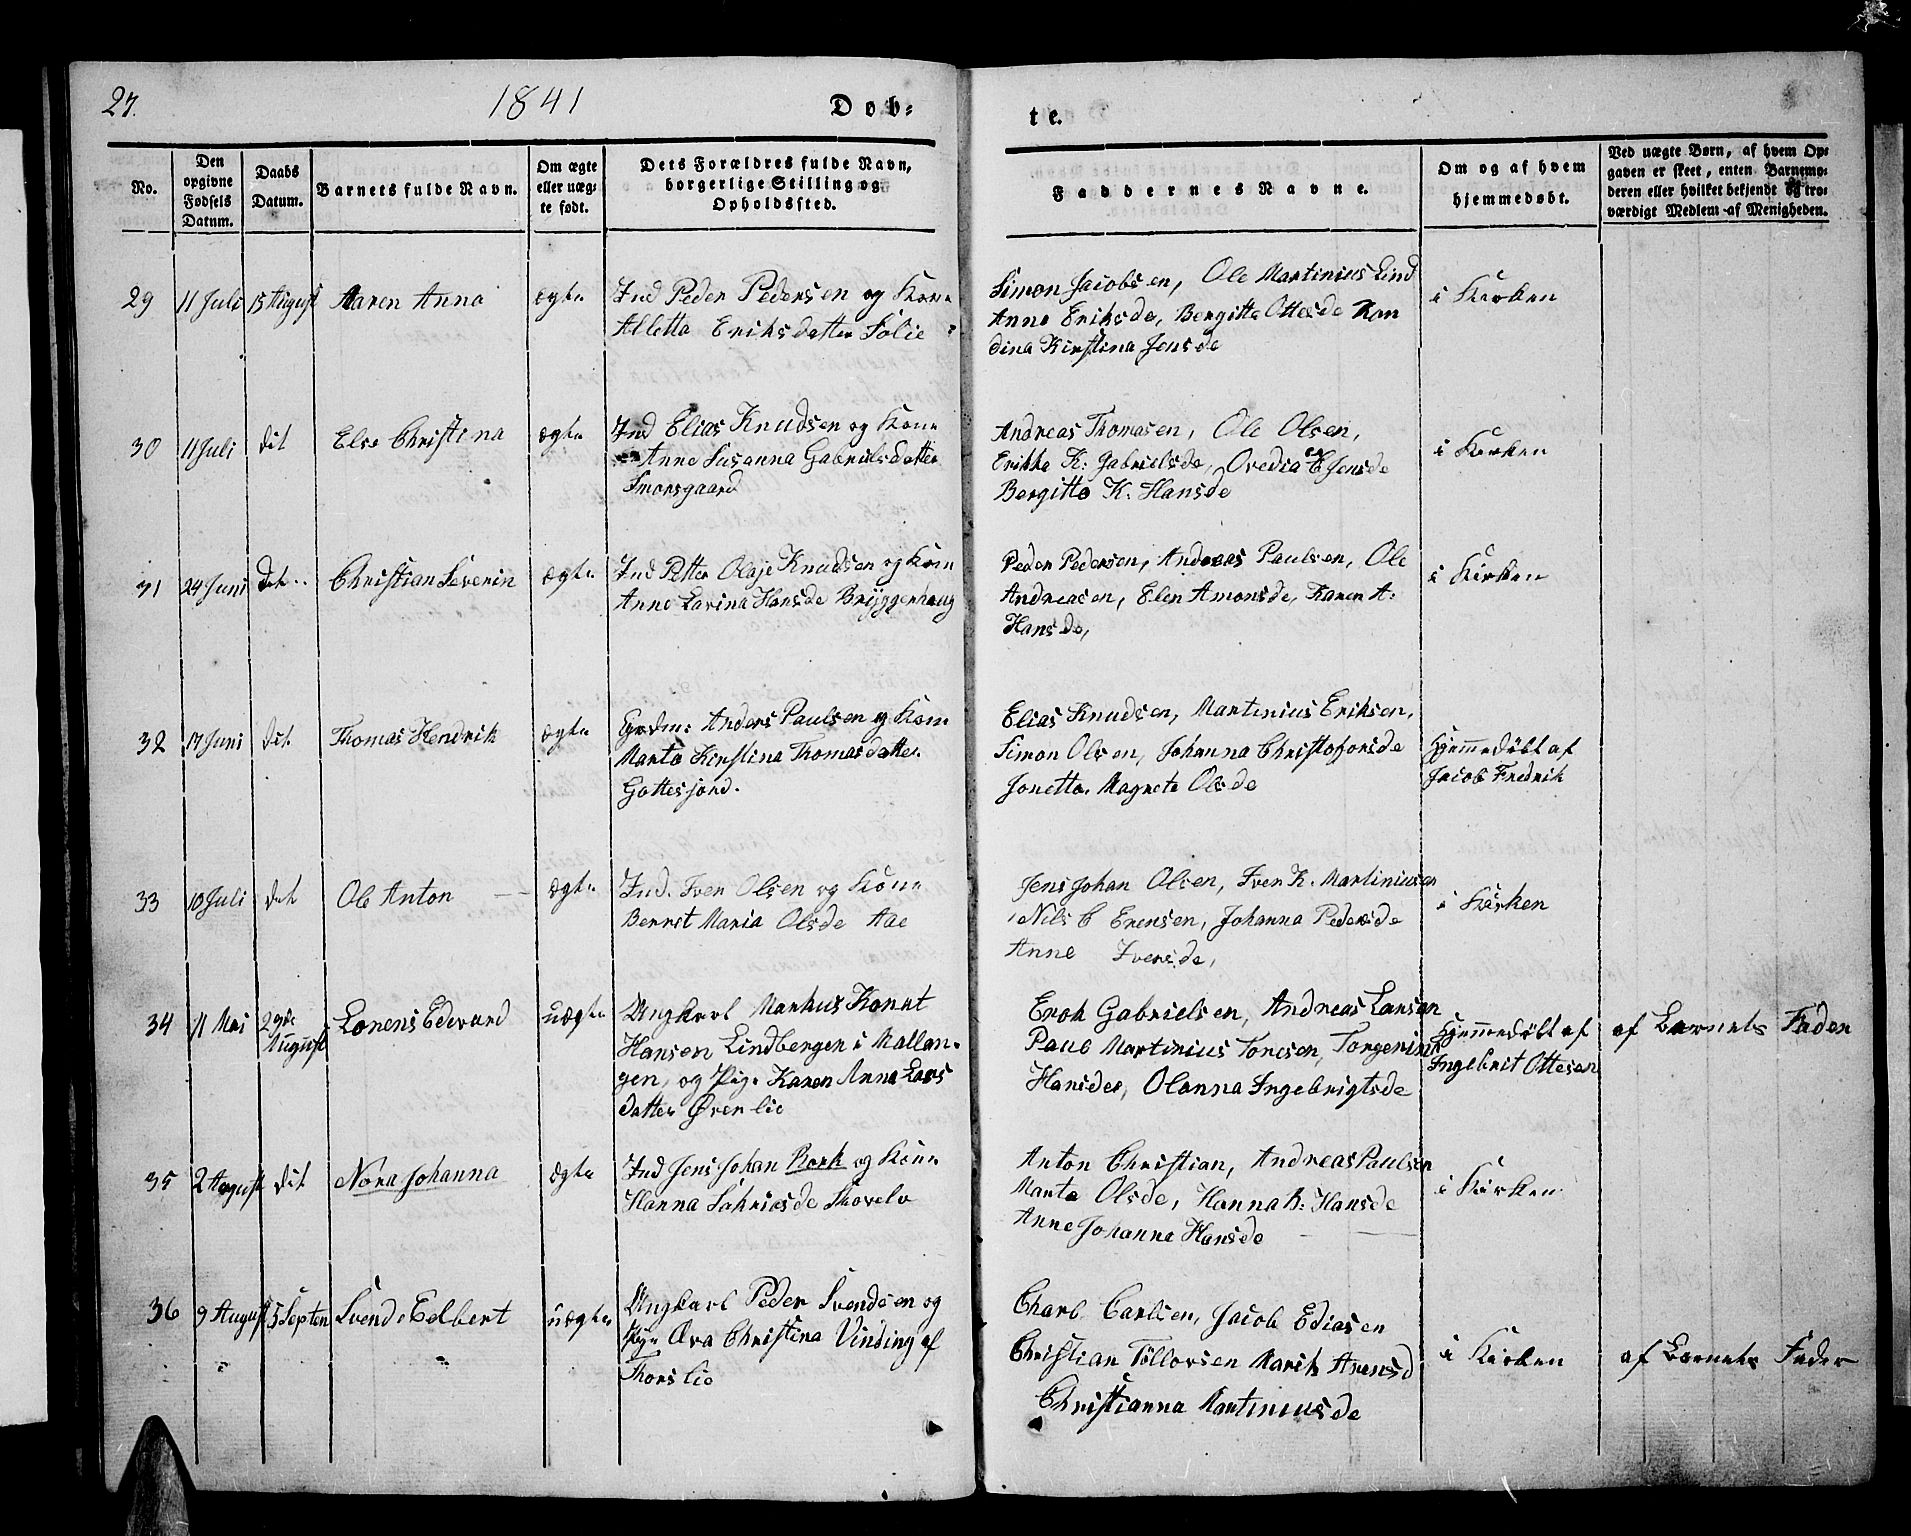 27.
1841
Døb-
te.
No.
Den opgivne Fødsels Datum.
Daabs Datum.
Barnets fulde Navn.
Om ægte eller uæg- te født.
Dets Forældres fulde Navn, borgerlige Stilling og Opholdssted.
Faddernes Navne.
Om og af hvem hjemmedøbt.
Ved uægte Børn, af hvem Op- gaven er skeet, enten Barnemo- deren eller hvilket bekjendt og tro- værdigt Medlem af Menigheden.
29 11 Juli 15 August Maren Anna ægte Ind Peder Pedersen og Kone
Alletta Eriksdatter Solie
Simon Jacobsen, Ole Martinius Lind
Anne Eriksde, Bergitte Ottesde Ran
dina Kirstina Jensde
i Kirken
30 11 Juli dit Else Christina ægte Ind Elias Knudsen og Kone
Anne Susanna Gabrielsdatter
Smorsgaard
Andreas Thomasen, Ole Olsen,
Erikka K: Gabrielsde, Ovedia E Jensde
Bergitte K: Hansde
i Kirken
31 24 Juni det Christian Severin ægte Ind Petter Olaje Knudsen og Kone
Anne Larina Hansde Bryggerhaug
Peder Pedersen, Andreas Paulsen, Ole
Andreasen, Elen Amonsde, Karen A:
Hansde,
i Kirken
32 17 Juni dit Thomas Hendrik ægte Grdm: Anders Paulsen og Kone
Marta Kirstina Thomasdatter
Gottesjord.
Elias Knudsen, Martinius Eriksen,
Simon Olsen, Johanna Christofersde
Jonetta Magrete Olsde
Hjemmedøbt af
Jacob Fredrik
33 10 Juli det Ole Anton ægte Ind. Iver Olsen og Kone
Berret Maria Olsde Aae
Jens Johan Olsen, Iver K. Martiniusen
Nils C Evensen, Johanna Pedersde
Anne Iversde,
i Kirken
34 11 Mai 29de August Lorens Edevard uægte Ungkarl Markus Konrat
Hansen Lindbergen i Mallan-
gen, og Pige Karen Anna Lars
datter Øvenlie
Erok Gabrielsen, Andreas Larsen
Paul Martinius Tonesen, Torgenine
Hansder, Olanna Ingebrigtsde
Hjemmedøbt af
Ingebrit Ottesen
af Barnets Fader
35 2 August dit Nora Johanna ægte Ind Jens Johan Rork og Kone
Hanna Sakriasde Skovelv
Anton Christian, Andreas Paulsen
Marta Olsde, Hanna B: Hansde
Anne Johanna Hansde
i Kirken
36 9 August 5 Septem Svend Edbert uægte Ungkarl Peder Svendsen og
Pige Ova Christina Vinding af
Thorslie
Charl Carlsen, Jacob Ediasen
Christian Tollovsen Marit Arensd
Christianna Martiniusde
i Kirken
af Barnets Fader